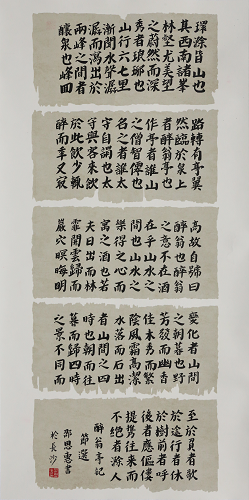 環滁皆山也
其西南諸峯
林壑尤美望
之蔚然而深
秀者琅琊也
山行六七里
漸聞水聲潺
潺而瀉出於
兩峰之間者
釀泉也峰回
路轉有亭翼
然臨於泉上
者醉翁亭也
作亭者誰山
之僧智僊也
名之者誰太
守自謂也太
守與客來飲
於此飲少輒
醉而年又最
高故自號曰
醉翁也醉翁
之意不在酒
在乎山水之
間也山水之
樂得之心而
寓之酒也若
夫日出而林
霏開雲歸而
巖穴暝晦明
變化者山間
之朝暮也野
芳發而幽香
佳木秀而繁
陰風霜高潔
水落而石出
者山間之四
時也朝而往
暮而歸四時
之景不同而
至於負者歌
於途行者休
於樹前者呼
後者應傴僂
提攜往來而
不絕者滁人
醉翁亭記
節選
恩惠書
於長沙